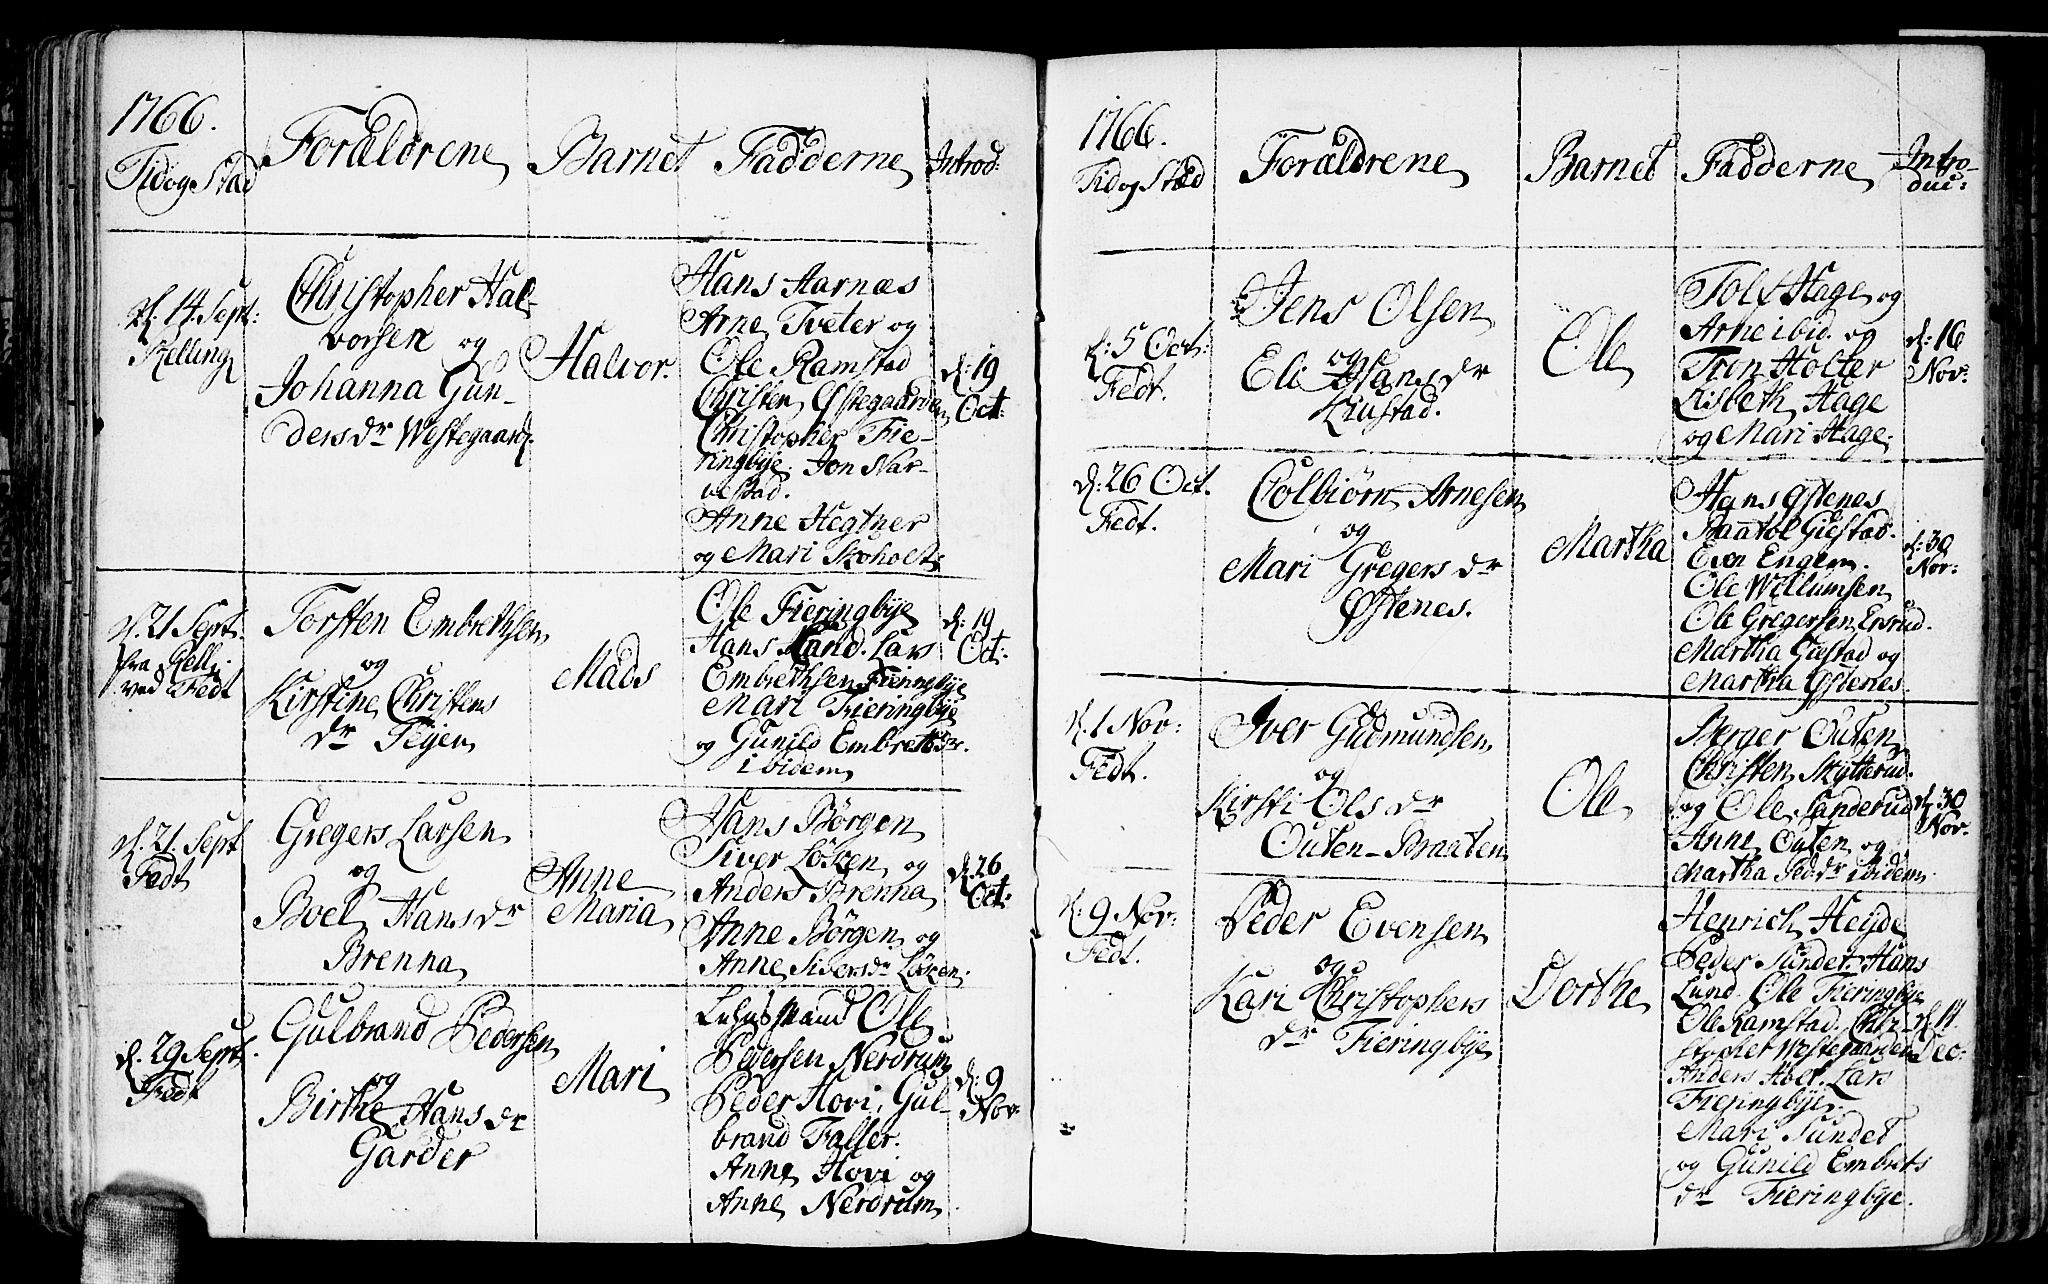 1766.
Tid og Stad
Forældrene
Barnet
Fadderne
Introd:
d. 14. Sept:
Relling
Christopher Hal-
vorsen og
Johanna Gun-
ders dr Westegaard.
Halvor.
Hans Aarnæs
Arne Tveter og
Ole Ramstad
Christen Østegaarden
Christopher Fie-
ringbye. Jon Nar-
vestad.
Anne Hegtner
og Mari Skoholt:
d: 19
Oct:
d. 21 Sept.
fra Relli:
ved Fedt
Torsten Embrethsen
og
Kirstine Christens
dr Teyen
Mads
Ole Fieringbye
Hans Lars
Embrethsen Fieringbye
Mari Fieringbye
og Gunild Embreths dr.
ibidem
d: 19
Oct:
d. 21. Sept
Fedt
Gregers Larsen
og
Boel Hans dr
Brenna
Anne
Maria
Hans Børgen
Siver Løken og
Anders Brenna
Anne Børgen og
Anne Sivers dr Løken.
d: 26
Oct:
d. 29 Sept.
Fedt
Gulbrand Pedersen
og
Birthe Hans dr
Garder
Mari
Ole
Pedersen Nerdrum
Peder Hovi, Gul-
brand Falser.
Anne Hovi og
Anne Nerdrum
d: 9
Nov:
1766.
Tid og Stæd
Forældrene
Barnet
Fadderne
Intro-
duc:
d: 5 Oct:
Fedt.
Jens Olsen
og
Eli Hans dr
Kiustad.
Ole
Tolf Hage og
Arne ibid. og
Tron Holter
Lisbeth Hage
og Mari Hage.
d: 16
Nov:
d: 26 Oct.
Fedt.
Colbiørn Arnesen
og
Mari Gregers dr
Østenes.
Martha
Hans Østenes
Giestad.
Even Engen.
Ole Willumsen
Ole Gregersen Ersrud.
Martha Giestad og
Martha Østenes
d: 30
Nov:
d. 1 Nov:
Fedt.
Iver Gudmundsen
og
Kirsti Ols dr
Outen-Braaten
Ole
Berger Outen
Christen Skytterud.
og Ole Sanderud
Anne Outen og
Martha Ped: dr ibidem.
d. 30
Nov:
d: 9 Nov:
Fedt.
Peder Evensen
og
Kari Christophers
dr Fieringbye
Dorthe
Henrich Heyde
Peder Sundet. Hans
Lund. Ole Fieringbye
Ole Ramstad. Chri-
stopher Westegaarden
Anders Lars
Fieringbye.
Mari Sundet
og Gunild Embrets
dr Fieringbye.
d. 11
Dec: